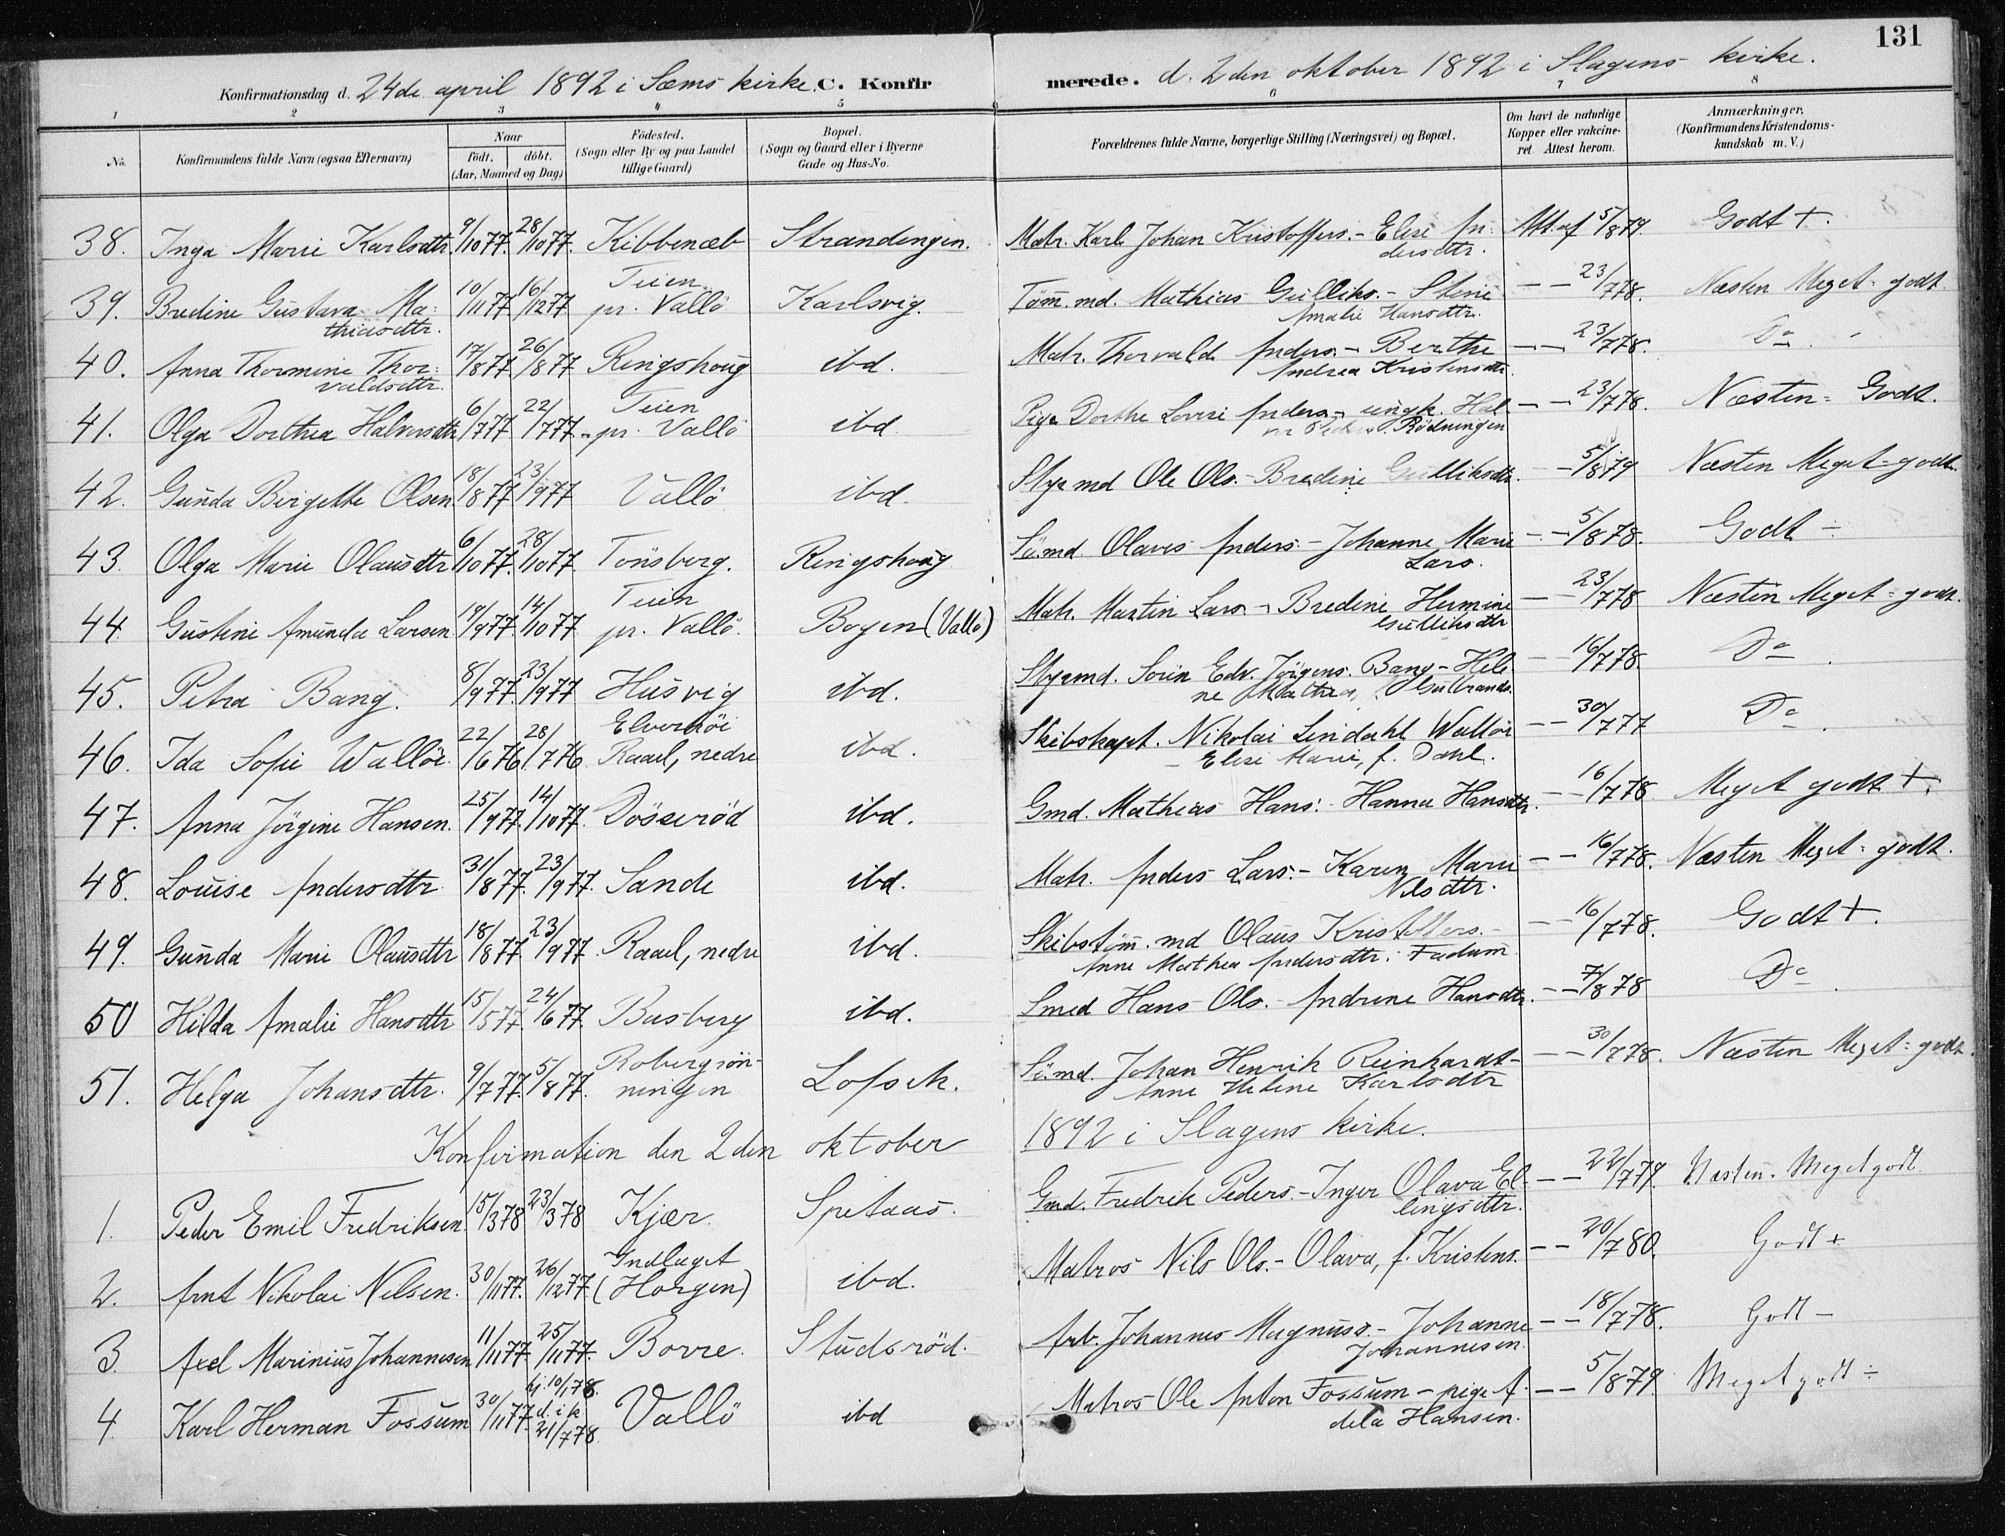 131
Konfirmationsdag d. 24de april 1892 i Sems kirke. C. Konfirmerede. d. 2den oktober 1892 i Slagens kirke.
1 2 3 4 5 6 7 8
No. Konfirmandens fulde Navn (ogsaa Efternavn) Naar født. døbt. (Aar, Maaned og Dag) Födested. (Sogn eller By og paa Landet tillige Gaard) Bopæl. (Sogn og Gaard eller i Byerne Gade og Hus-No. Forældrenes fulde Navne, borgerlige Stilling (Næringsvei) og Bopæl. Om havt de naturlige Kopper eller vakcineret. Attest herom. Anmærkninger. (Konfirmandens Kristendomskundskab m. V.)
38. Inga Marie Karlsdtr. 9/10 77. 28/10 77. Kibbenæb Strandengen. Matr. Karl Johan Kristoffers. - Elise Andersdtr. Att. af 5/8 79. Godt +.
39. Bredine Gustava Mathiasdtr. 10/11 77 16/12 77 Teien pr. Vallö Karlsvig. Tømmd. Mathias Gulliks. - Stine Amalie Hansdtr. — — 23/7 78. Næsten Meget-godt.
40. Anna Thormine Thorvaldsdtr. 17/8 77 26/8 77 Ringshoug ibd. Matr. Thorvald Anders. - Berthe Andrea Kristensdtr. — — 23/7 78. Do
41. Olga Dorthea Halvorsdtr 6/7 77 22/7 77. Teien pr. Vallö ibd. Pige Dorthe Lovise Anders. - ungk. Hal- Rödningen — — 23/7 78. Næsten - Godt.
42. Gunda Birgette Olsen. 18/8 77. 23/9 77 Vallö ibd. Styrmd Ole Ols. - Bredine Gulliksdtr. — 5/8 79 Næsten Meget-godt.
43. Olga Marie Olausdtr 6/10 77. 28/10 77. Tönsberg. Ringshoug Sömd. Olaves Anders. - Johanne Marie Lars. — — 5/8 78. Godt -
44. Gustine Amunda Larsen 19/9 77. 14/10 77 Teien pr. Vallö. Bogen (Vallö) Matr. Martin Lars. - Bredine Hermine Gulliksdtr — — 23/7 78 Næsten Meget-godt.
45. Petra Bang. 8/9 77. 23/9 77 Husvig ibd. Styrmd. Sörin Edv. Jörgens. Bang - Heline Mathea, Gulbrands. — 16/7 78. Do
46. Ida Sofie Wallöe. 22/6 76. 28/7 76. Elverhöi Raael, nedre ibd. Skibskapt. Nikolai Lindahl Wallöe - Elise Marie, f. Dahl. — — 30/7 77 Do
47. Anna Jörgine Hansen. 25/9 77. 14/10 77. Dösserød ibd. Gmd. Mathias Hans. - Hanna Hansdtr. — — 16/7 78. Meget godt +.
48. Louise Andersdtr 31/8 77. 23/9 77. Sande ibd. Matr. Anders Lars. - Karen Marie Nilsdtr. — — 16/7 78. Næsten Meget-godt.
49. Gunda Marie Olausdtr 18/8 77. 23/9 77. Raael, nedre ibd. Skibstøm. md Olaus Kristoffers. - Anne Mathea Andersdtr. Fadum — — 16/7 78. Godt +.
50 Hilda Amalie Hansdtr 15/5 77. 24/6 77. Basberg ibd. Smed Hans Ols. - Andrine Hansdtr. — — 7/8 78 Do
51. Helga Johansdtr. 9/7 77. 5/8 77. Robergrönningen Lofsek. Sömd. Johan Henrik Reinhardt - Anne Helene Karlsdtr — — 30/7 78. Næsten Meget-godt.
Konfirmation den 2den oktober 1892 i Slagens kirke.
1. Peder Emil Fredriksen. 15/3 78 23/3 78 Kjær. Spetaas. Gmd. Fredrik Peders. - Inger Olava Ellingsdtr. — — 22/7 79 Næsten. Meget godt.
2. Arnt Nikolai Nilsen. 30/11 77. 26/12 77. Indlaget (Horgen) ibd. Matros Nils Ols. - Olava, f. Kristens. — — 20/7 80. Godt +
3. Axel Marinius Johannesen 11/11 77. 25/11 77. Borre. Studsrød. Arb. Johannes Magnuss. - Johanne Johannesen. — — 18/7 78. Godt -
4. Karl Herman Fossum 30/11 77. hj. 10/1 78. d. i k 21/7 78. Vallö ibd Matros Ole Anton Fossum - pige Adela Hansen. — — 5/8 79. Meget godt ÷